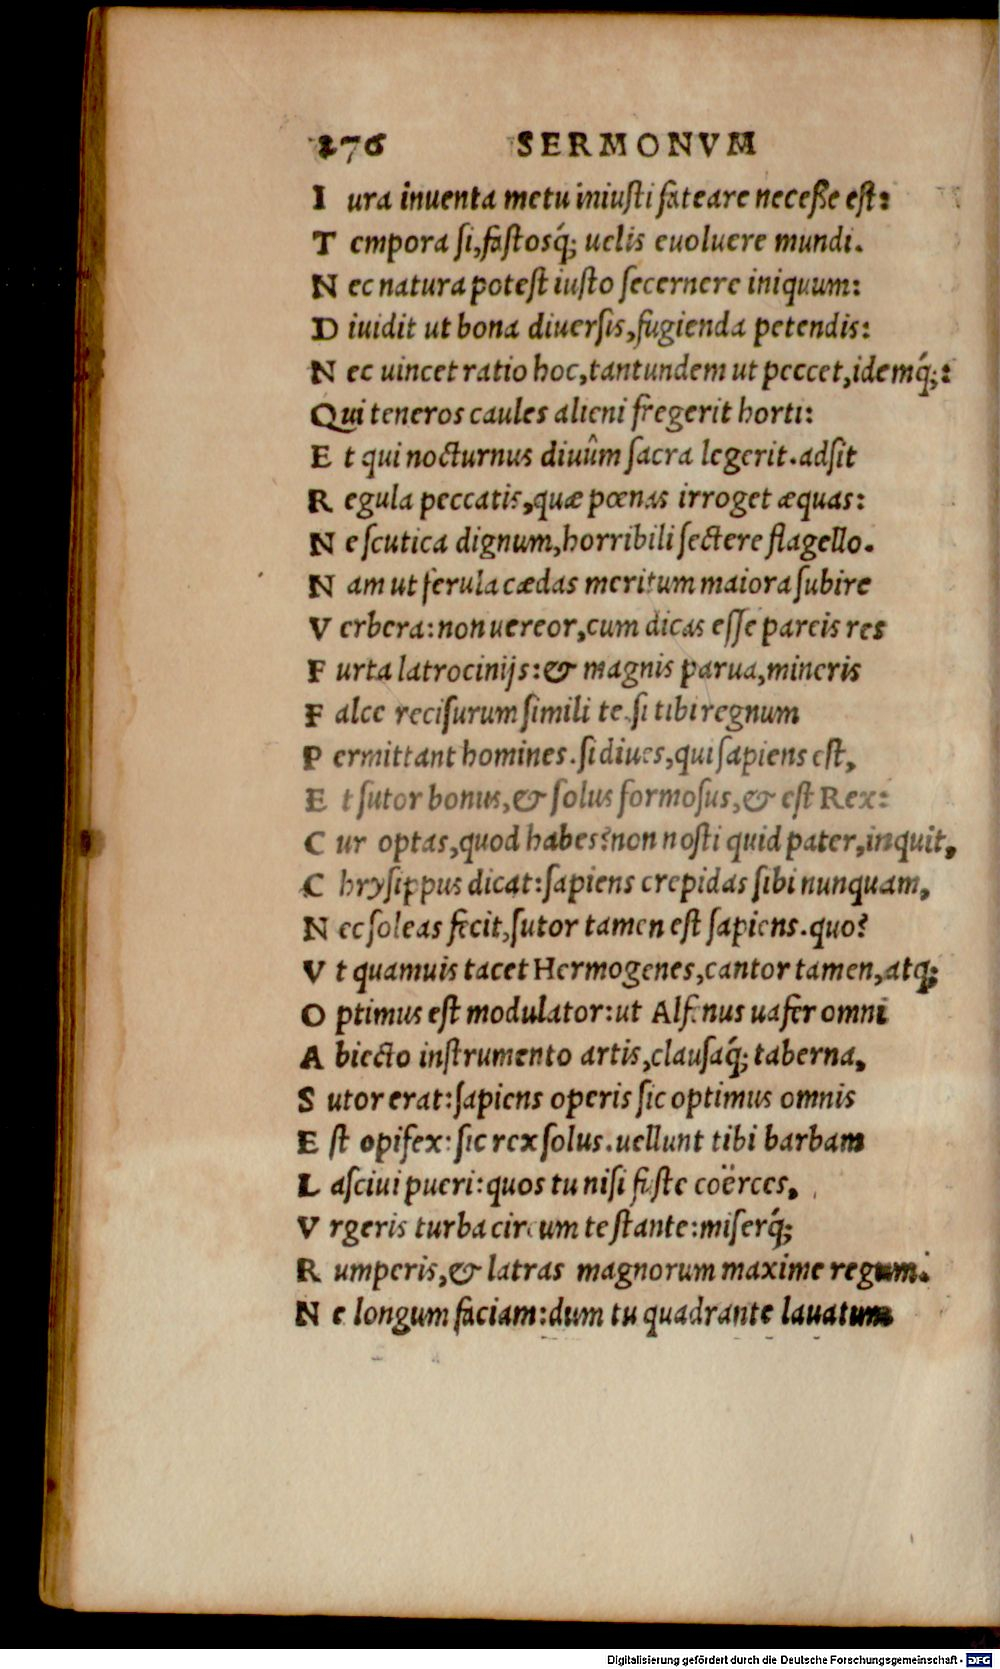 276 SERMONVM
I ura inuenta metu iniusti fateare neceße est:
T empora si, fastosq́; uelis euoluere mundi.
N ec natura potest iusto secernere iniquum:
D iuidit ut bona diuersis, fugienda petendis:
N ec uincet ratio hoc, tantundem ut peccet, idemq́;:
Qui teneros caules alieni fregerit horti:
E t qui nocturnus diuûm sacra legerit. adsit
R egula peccatis, quæ pœnas irroget æquas:
N e scutica dignum, horribili sectere flagello.
N am ut ferula cædas meritum maiora subire
V erbera: non uereor, cum dicas esse pareis res
F urta latrocinijs: & magnis parua, mineris
F alce recisurum simili te. si tibi regnum
P ermittant homines. si diues, qui sapiens est,
E t sutor bonus, & solus formosus, & est Rex:
C ur optas, quod habes? non nosti quid pater, inquit,
C hrysippus dicat: sapiens crepidas sibi nunquam,
N ec soleas fecit, sutor tamen est sapiens. quo?
V t quamuis tacet Hermogenes, cantor tamen, atq;
O ptimus est modulator: ut Alfenus uafer omni
A biecto instrumento artis, clausaq́; taberna,
S utor erat: sapiens operis sic optimus omnis
E st opifex: sic rex solus. uellunt tibi barbam
L asciui pueri: quos tu nisi fuste coërces,
V rgeris turba circum te stante: miserq́;
R umperis, & latras magnorum maxime regum.
N e longum faciam: dum tu quadrante lauatum
Digitalisierung gefördert durch die Deutsche Forschungsgemeinschaft - DFG